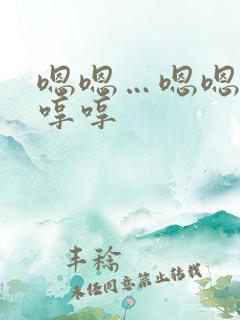 嗯嗯…嗯嗯
哼哼
丰稔
未经同意禁止转载